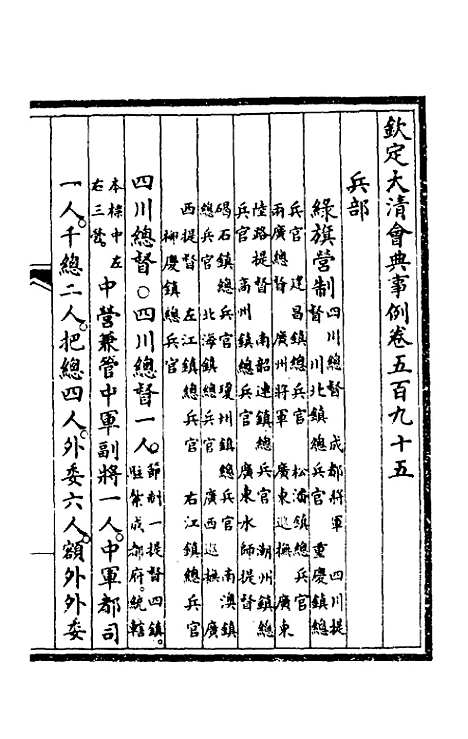 欽定大清會典事例卷五百九十五
兵部
綠旗營制
四川總督 成都將軍 四川提
督 川北鎮總兵官 重慶鎮總
兵官 建昌鎮總兵官 松潘鎮總兵官
兩廣總督 廣州將軍 廣東巡撫 廣東
陸路提督 南韶連鎮總兵官 潮州鎮總
兵官 高州鎮總兵官 廣東水師提督
碣石鎮總兵官 瓊州鎮總兵官 南澳鎮
總兵官 北海鎮總兵官 廣西巡撫 廣
西提督 左江鎮總兵官 右江鎮總兵官
柳慶鎮總兵官
四川總督○四川總督一人
節制一提督四鎮
駐紮成都府統轄
本標中左
右三營
中營兼管中軍副將一人中軍都司
一人千總二人把總四人外委六人額外外委